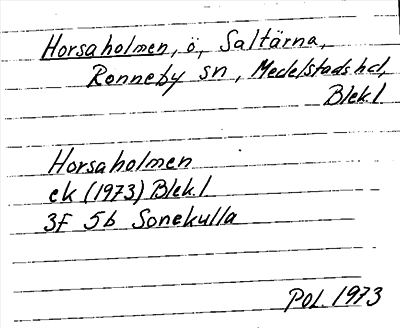 Horsaholmen, ö, Saltärna,
Ronneby sn, Medelstads hd,
Blek.l
Horsaholmen
ek (1973) Blek.l
3F 5b Sonekulla
POL. 1973